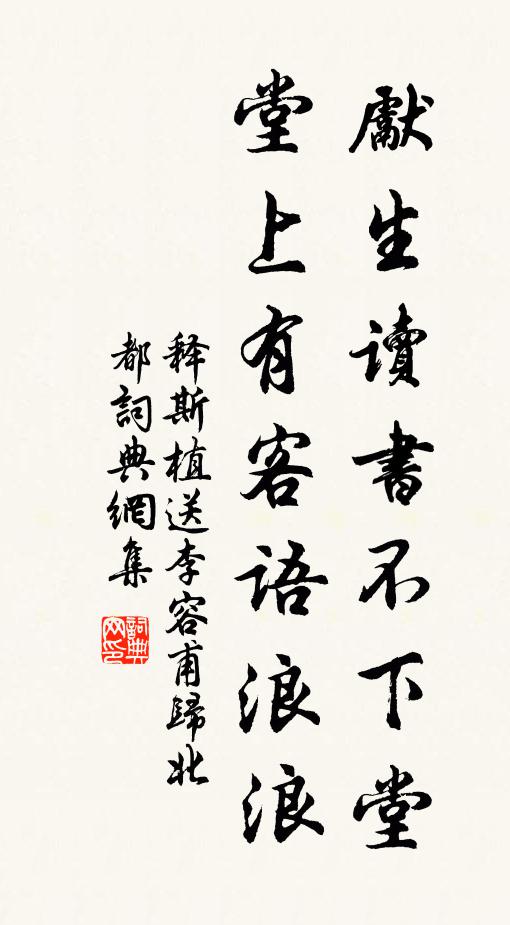 獻生讀書不下堂
堂上有客語浪浪
释斯植送李容甫歸北
都詞典網集
詞典网印